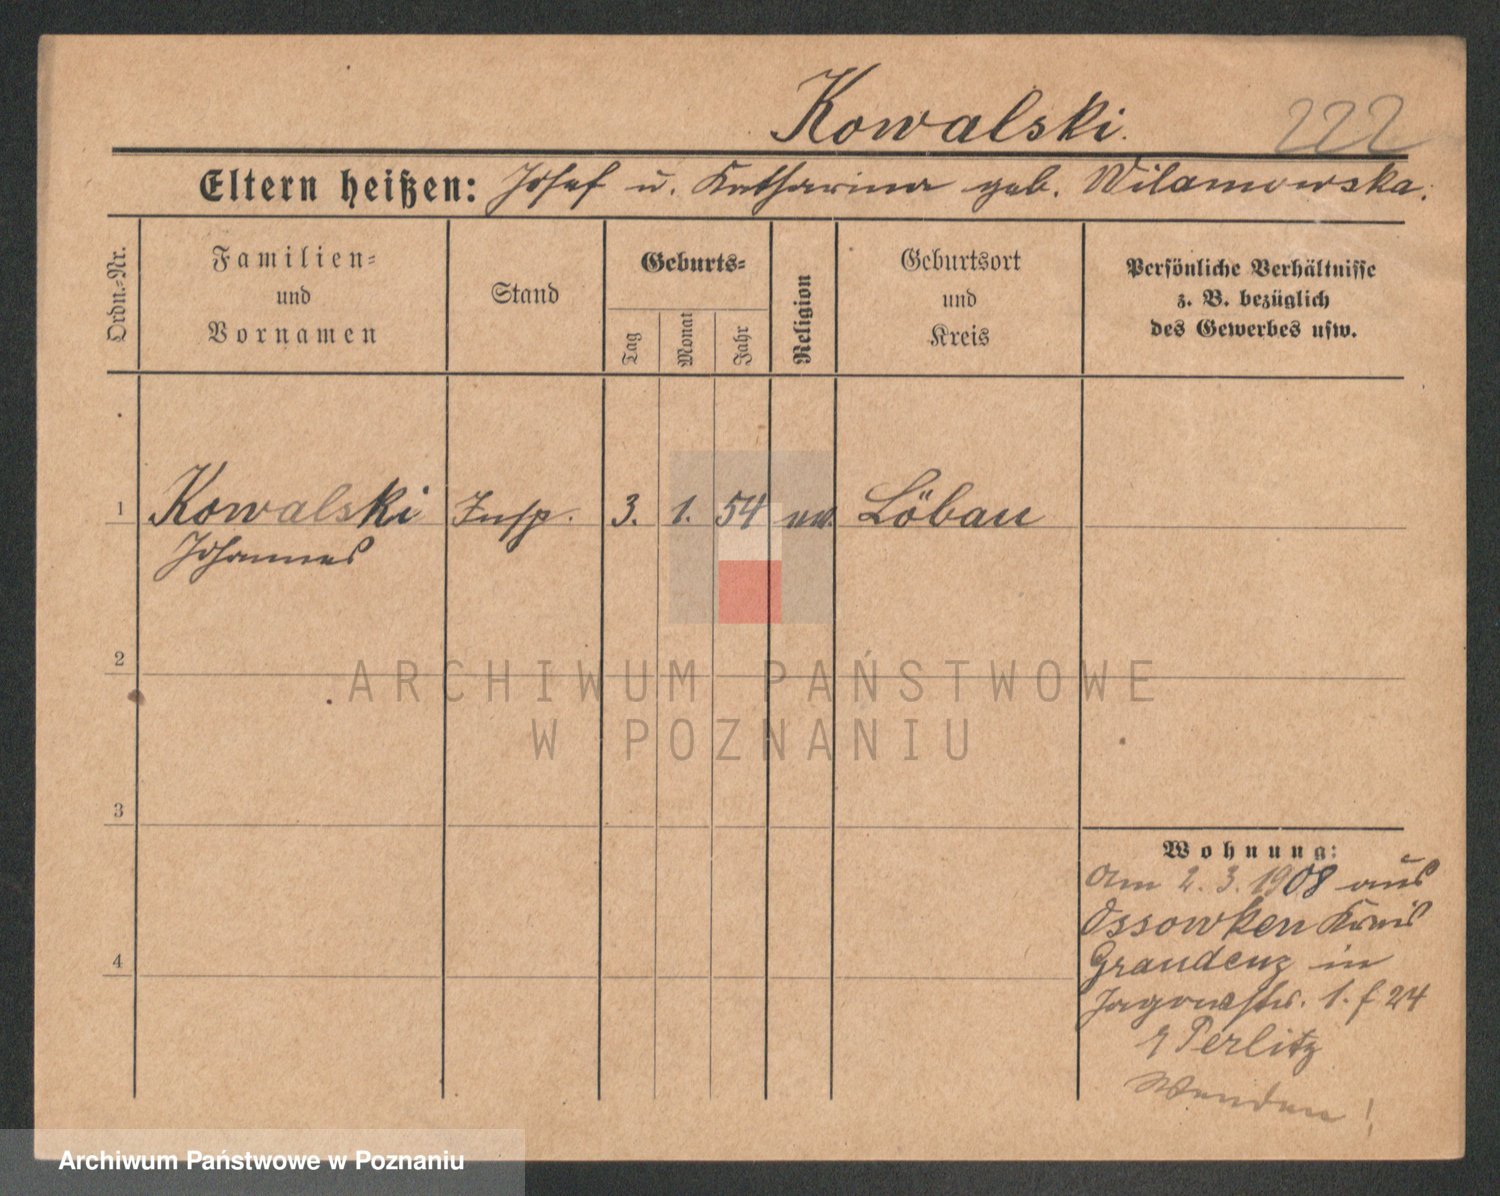 Kowalski. 222
Eltern heißen: Josef u. Katharina geb. Wilamowska.
Ordn.-Nr.
Familien-
und
Vornamen
Stand
Geburts-
Tag
Monat
Jahr
Religion
Geburtsort
und
Kreis
Persönliche Verhältnisse
z. B. bezüglich
des Gewerbes usw.
1 Kowalski Insp. 3. 1. 54 Löbau
Johannes
2
3
4
Wohnung:
Am 2. 3. 1908 aus
Ossowken Kreis
Graudenz in
Jagowstr. 1. f 24
Perlitz
Wenden!
ARCHIWUM PAŃSTWOWE
W POZNANIU
Archiwum Państwowe w Poznaniu